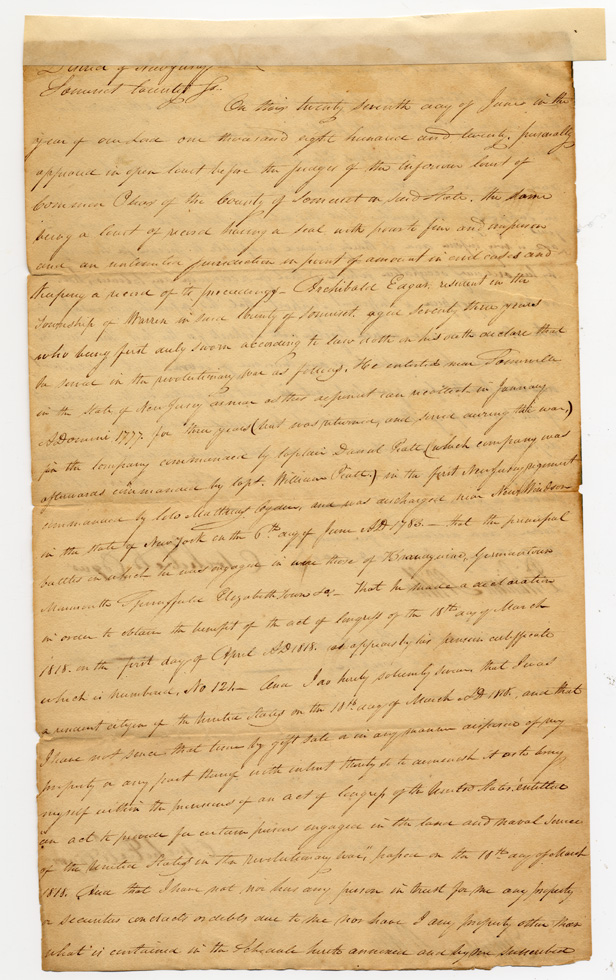 District of New Jersey
Somerset County Ss.
On this twenty seventh day of June in the
year of our Lord one thousand eight hundred and twenty, personally
appeared in open Court before the Judges of the Inferiour Court of
Common Pleas of the County of Somerset in said State, the same
being a Court of record having a seal with power to fine and imprison
and an unlimited jurisdiction in point of amount in civil cases and
keeping a record of the proceedings - Archibald Edgar, resident in the
Township of Warren in said County of Somerset, aged seventy three years
who being first duly sworn according to law doth on his oath declare that
he served in the revolutionary war as follows, He enlisted near Somerville
in the State of New Jersey as near as this deponent can recollect in January
ADomini 1777 for three years (but was returned, and served during the war,)
in the Company commanded by Captain Daniel Piatt (which company was
afterwards commanded by Capt. William Piatt,) in the first New Jersey regiment
commanded by Colo Mathias Ogden, and was discharged near New Windsor
in the State of New York on the 6th day of June AD 1783 - that the principal
battles in which he was engaged in were those of Brandywine, Germantown
Monmouth Springfield Elizabeth Town &c - that he made a declaration
in order to obtain the benefit of the act of Congress of the 18th day of March
1818. on the first day of April AD 1818. as appears by his pension certificate
which is numbered, No - And I do hereby solemnly swear that I was
a resident citizen of the United States on the 18th day of March AD 1818. and that
I have not since that time by gift sale or in any manner disposed of my
property or any part thereof with intent thereby so to diminish it as to bring
myself within the provisions of an act of Congress of the United States entitled
"an act to provide for certain persons engaged in the land and naval Service
of the United States in the revolutionary war," passed on the 18th day of March
1818. And that I have not, nor has any person in trust for me any property
or securities contracts or debts due to me nor have I any property other than
what is contained in the schedule hereto annexed and by me subscribed